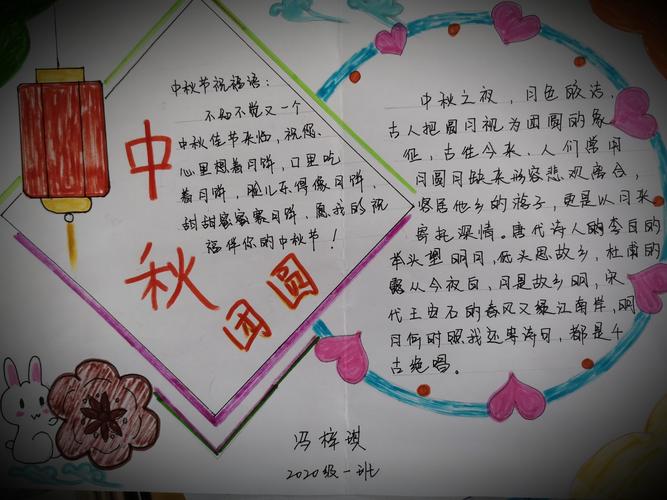 中
秋
团圆
中秋节祝福语：
不知不觉又一个
中秋佳节来临，祝你、
心里想着月饼，口里吃
着月饼，脸儿乐得像月饼、
甜甜蜜蜜赛月饼，愿我的祝
福伴你的中秋节！
中秋之夜，月色皎洁、
古人把圆月视为团圆的象
征，古往今来、人们常用
月圆月缺来形容悲观离合，
客居他乡的游子，更是以月来
寄托深情。唐代诗人的李白的
举头望明月，低头思故乡，杜甫的
露从今夜白，月是故乡明，宋
代王安石的春风又绿江南岸，明
月何时照我还等诗句，都是千
古绝唱。
冯梓琪
2020级一班